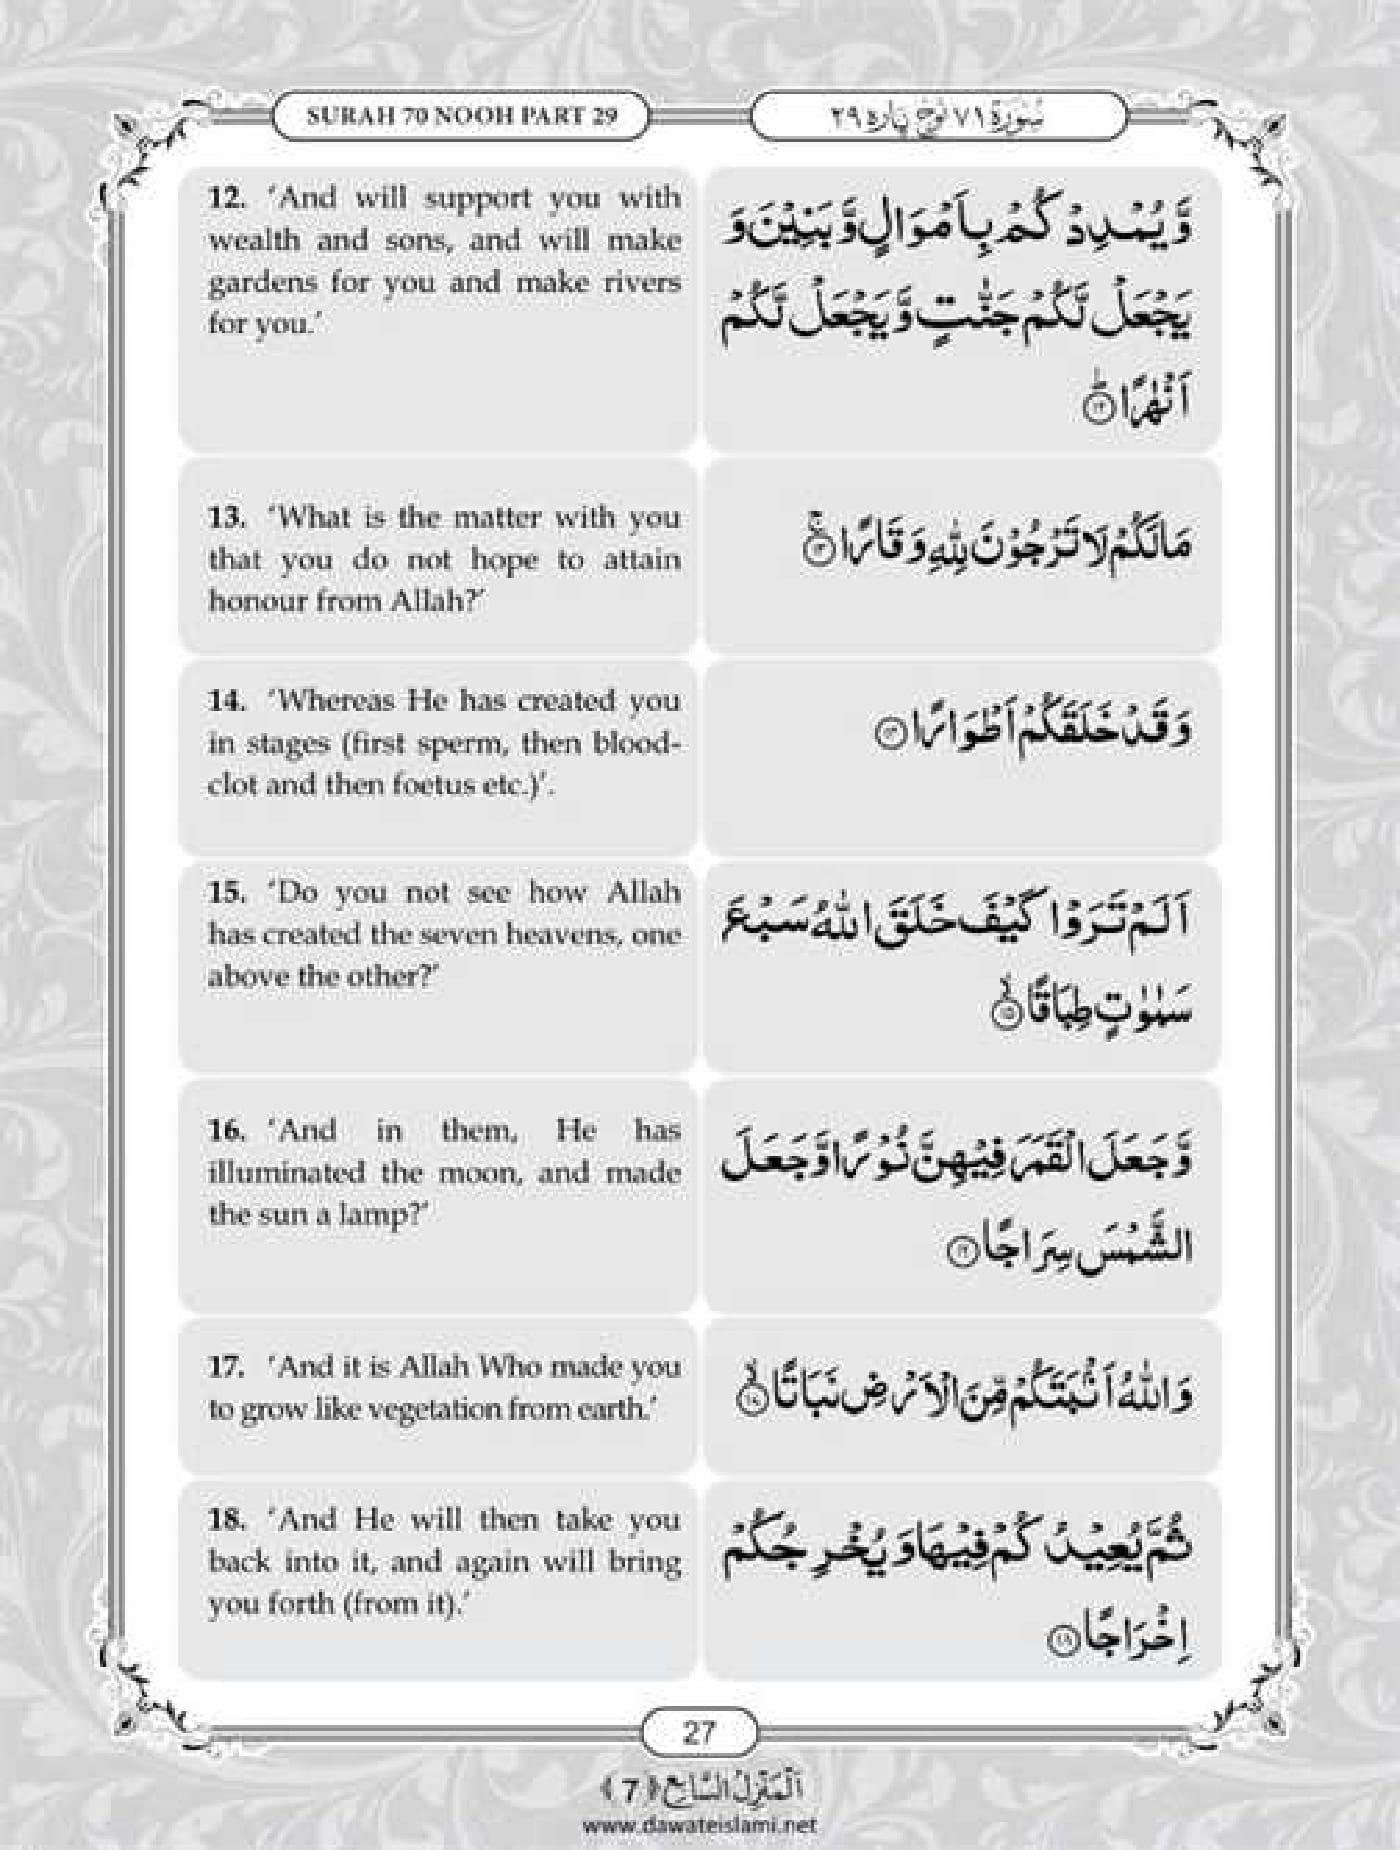 SURAH 70 NOOH PART 29
سُوْرَةُ ٧١ نُوْح پاره ٢٩
12. ‘And will support you with
wealth and sons, and will make
gardens for you and make rivers
for you.’
وَّ يُمْدِدْكُمْ بِاَمْوَالٍ وَّ بَنِيْنَ وَ
يَجْعَلْ لَّكُمْ جَنّٰتٍ وَّ يَجْعَلْ لَّكُمْ
اَنْهٰرًاؕ ۱۲
13. ‘What is the matter with you
that you do not hope to attain
honour from Allah?’
مَا لَكُمْ لَا تَرْجُوْنَ لِلّٰهِ وَقَارًاۚ ۱۳
14. ‘Whereas He has created you
in stages (first sperm, then blood-
clot and then foetus etc.)’.
وَ قَدْ خَلَقَكُمْ اَطْوَارًا ۱۴
15. ‘Do you not see how Allah
has created the seven heavens, one
above the other?’
اَلَمْ تَرَوْا كَيْفَ خَلَقَ اللّٰهُ سَبْعَ
سَمٰوٰتٍ طِبَاقًاۙ ۱۵
16. ‘And in them, He has
illuminated the moon, and made
the sun a lamp?’
وَّ جَعَلَ الْقَمَرَ فِيْهِنَّ نُوْرًا وَّ جَعَلَ
الشَّمْسَ سِرَاجًا ۱۶
17. ‘And it is Allah Who made you
to grow like vegetation from earth.’
وَ اللّٰهُ اَنْۢبَتَكُمْ مِّنَ الْاَرْضِ نَبَاتًاۙ ۱۷
18. ‘And He will then take you
back into it, and again will bring
you forth (from it).’
ثُمَّ يُعِيْدُكُمْ فِيْهَا وَ يُخْرِجُكُمْ
اِخْرَاجًا ۱۸
27
اَلْمَنْزِلُ السَّابِع ﴿7﴾
www.dawateislami.net